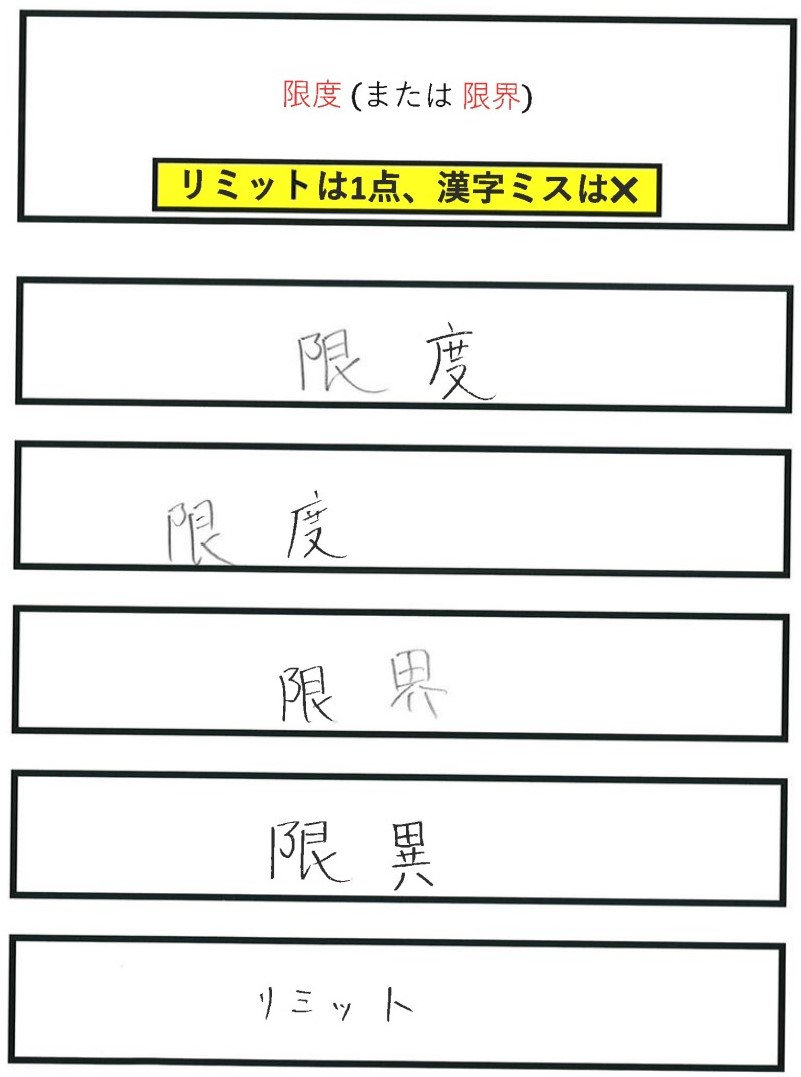 限度 (または 限界)
リミットは1点、漢字ミスは✕
限度
限度
限界
限異
リミット